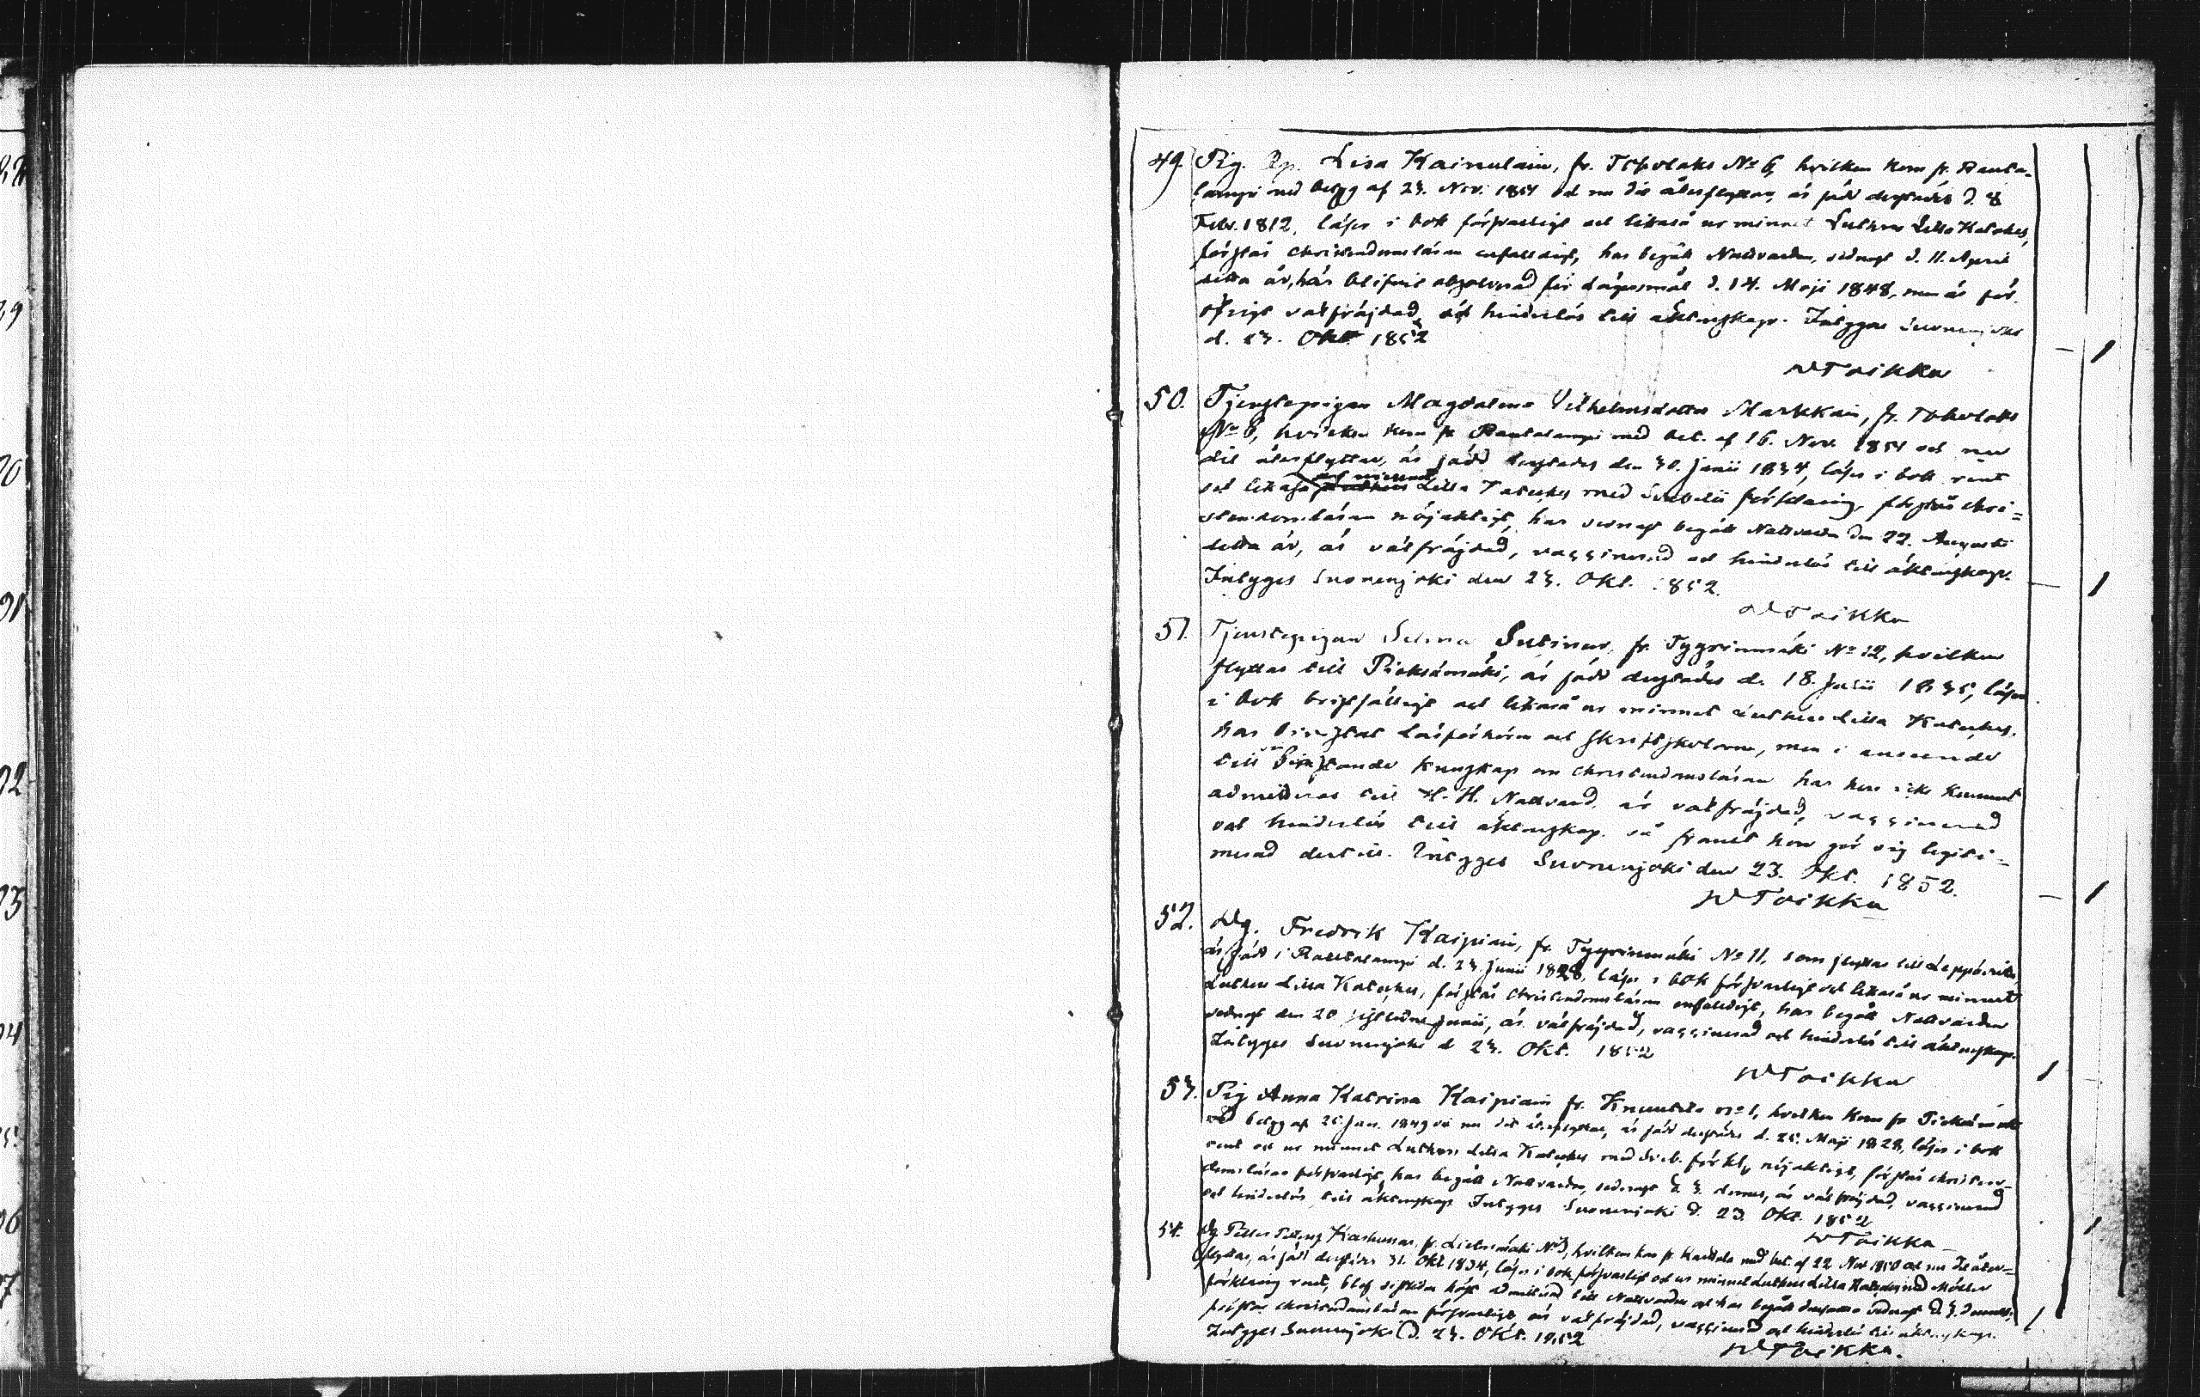 49. Pig. Lisa Kainulain, fr. Toholaks No 6, hvilken kom fr. Rauta-
lampi med betyg af 23. Nov. 1851 och nu dit återflyttar, är född dersstädes d. 8
Febr. 1812, läser i bok försvarligt och likaså ur minnet Luthers Lilla Kateches,
förstår christendomsläran enfaldigt, har begått Nattvarden, sednast d. 11. April
detta år, har blifvit absolverad för lägersmål d. 14. Maji 1848, men är för
öfrigt välfräjdad, och hinderlös till äktenskap. Intygar Suonenjoki
d. 23. Okt. 1852
WToikka
50. Tjenstepigan Magdalena Vilhelmsdotter Markkain, fr. Toholaks
No 6, hvilken kom fr Rautalampi med bet. af 16. Nov. 1851 och nu
dit återflyttar, är född derstädes den 30. Junii 1834, läser i bok rent
och likaså ur minnet Lilla Kateches med Svebelii förklaring, förstår chri-
stendomsläran nöjaktigt, har sednast begått Nattvarden den 22. Augusti
detta år, är välfräjdad, vaccinerad och hinderlös till äktenskap.
Intyges Suonenjoki den 23. Okt. 1852.
WToikka
51. Tjenstepigan Selma Sutinen, fr. Tyyrinmäki No 12, hvilken
flyttar till Pieksämäki, är född derstädes d. 18. Julii 1835, läser
i bok bristfälligt och likaså ur minnet Luthers Lilla Kateches,
har bivistat läsförhören och skriftskolorna, men i anseende
till bristande kunskap om christendomsläran har hon icke kunnat
admitteras till H. H. Nattvard, är välfräjdad, vaccinerad
och hinderlös till äktenskap, så framt hon gör sig legiti-
merad dertill. Intyges Suonenjoki den 23. Okt. 1852.
WToikka
52. Dg. Fredrik Kaipiain, fr. Tyyrinmäki No 11, som flyttar till Leppävirta,
är född i Rautalampi d. 23. Junii 1828, läser i bok försvarligt och likaså ur minnet
Luthers Lilla Kateches, förstår christendomsläran enfaldigt, har begått Nattvarden
sednast den 20 sistledne Junii, är välfräjdad, vaccinerad och hinderlös till äktenskap.
Intyges Suonenjoki d 23. Okt. 1852
WToikka
53. Pig Anna Katrina Kaipiain fr. Knuutila no 1, hvilken kom fr Pieksämäki
betyg af 25 Jan. 1849 och nu dit återflyttar, är född derstädes d. 25. Maji 1828, läser i bok
rent och ur minnet Luthers Lilla Kateches med Sveb. förkl. nöjaktigt, förstår christen-
domsläran försvarligt, har begått Nattvarden, sednast d. 3. dennes, är välfräjdad, vaccinerad
och hinderlös till äktenskap Intyges Suonenjoki d. 23. Okt. 1852
WToikka
54. Dg Petter Karhunen, fr. Lietemäki No 3, hvilken kom fr. Karttula med bet. af 22 Nov 1850 och nu dit åter-
flyttar, är född derstädes 31. Okt 1834, läser i bok försvarligt och ur minnet Luthers Lilla Kateches med
förklaring rent, blef sistliden höst admitterad till Nattvarden och har begått densamma sednast d. 3. dennes,
förstår christendomsläran försvarligt, är välfräjdad, vaccinerad och hinderlös till äktenskap.
Intyges Suonenjoki d. 23. Okt. 1852
WToikka.